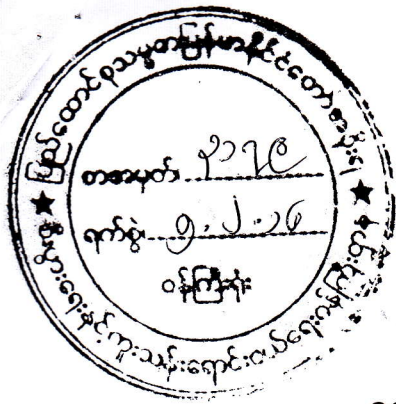 ပြည်ထောင်စုသမ္မတမြန်မာနိုင်ငံတော်အစိုးရ
စာအမှတ်
ရက်စွဲ
ဝန်ကြီးရုံး
စီးပွားရေးနှင့်ကူးသန်းရောင်းဝယ်ရေးဝန်ကြီးဌာန